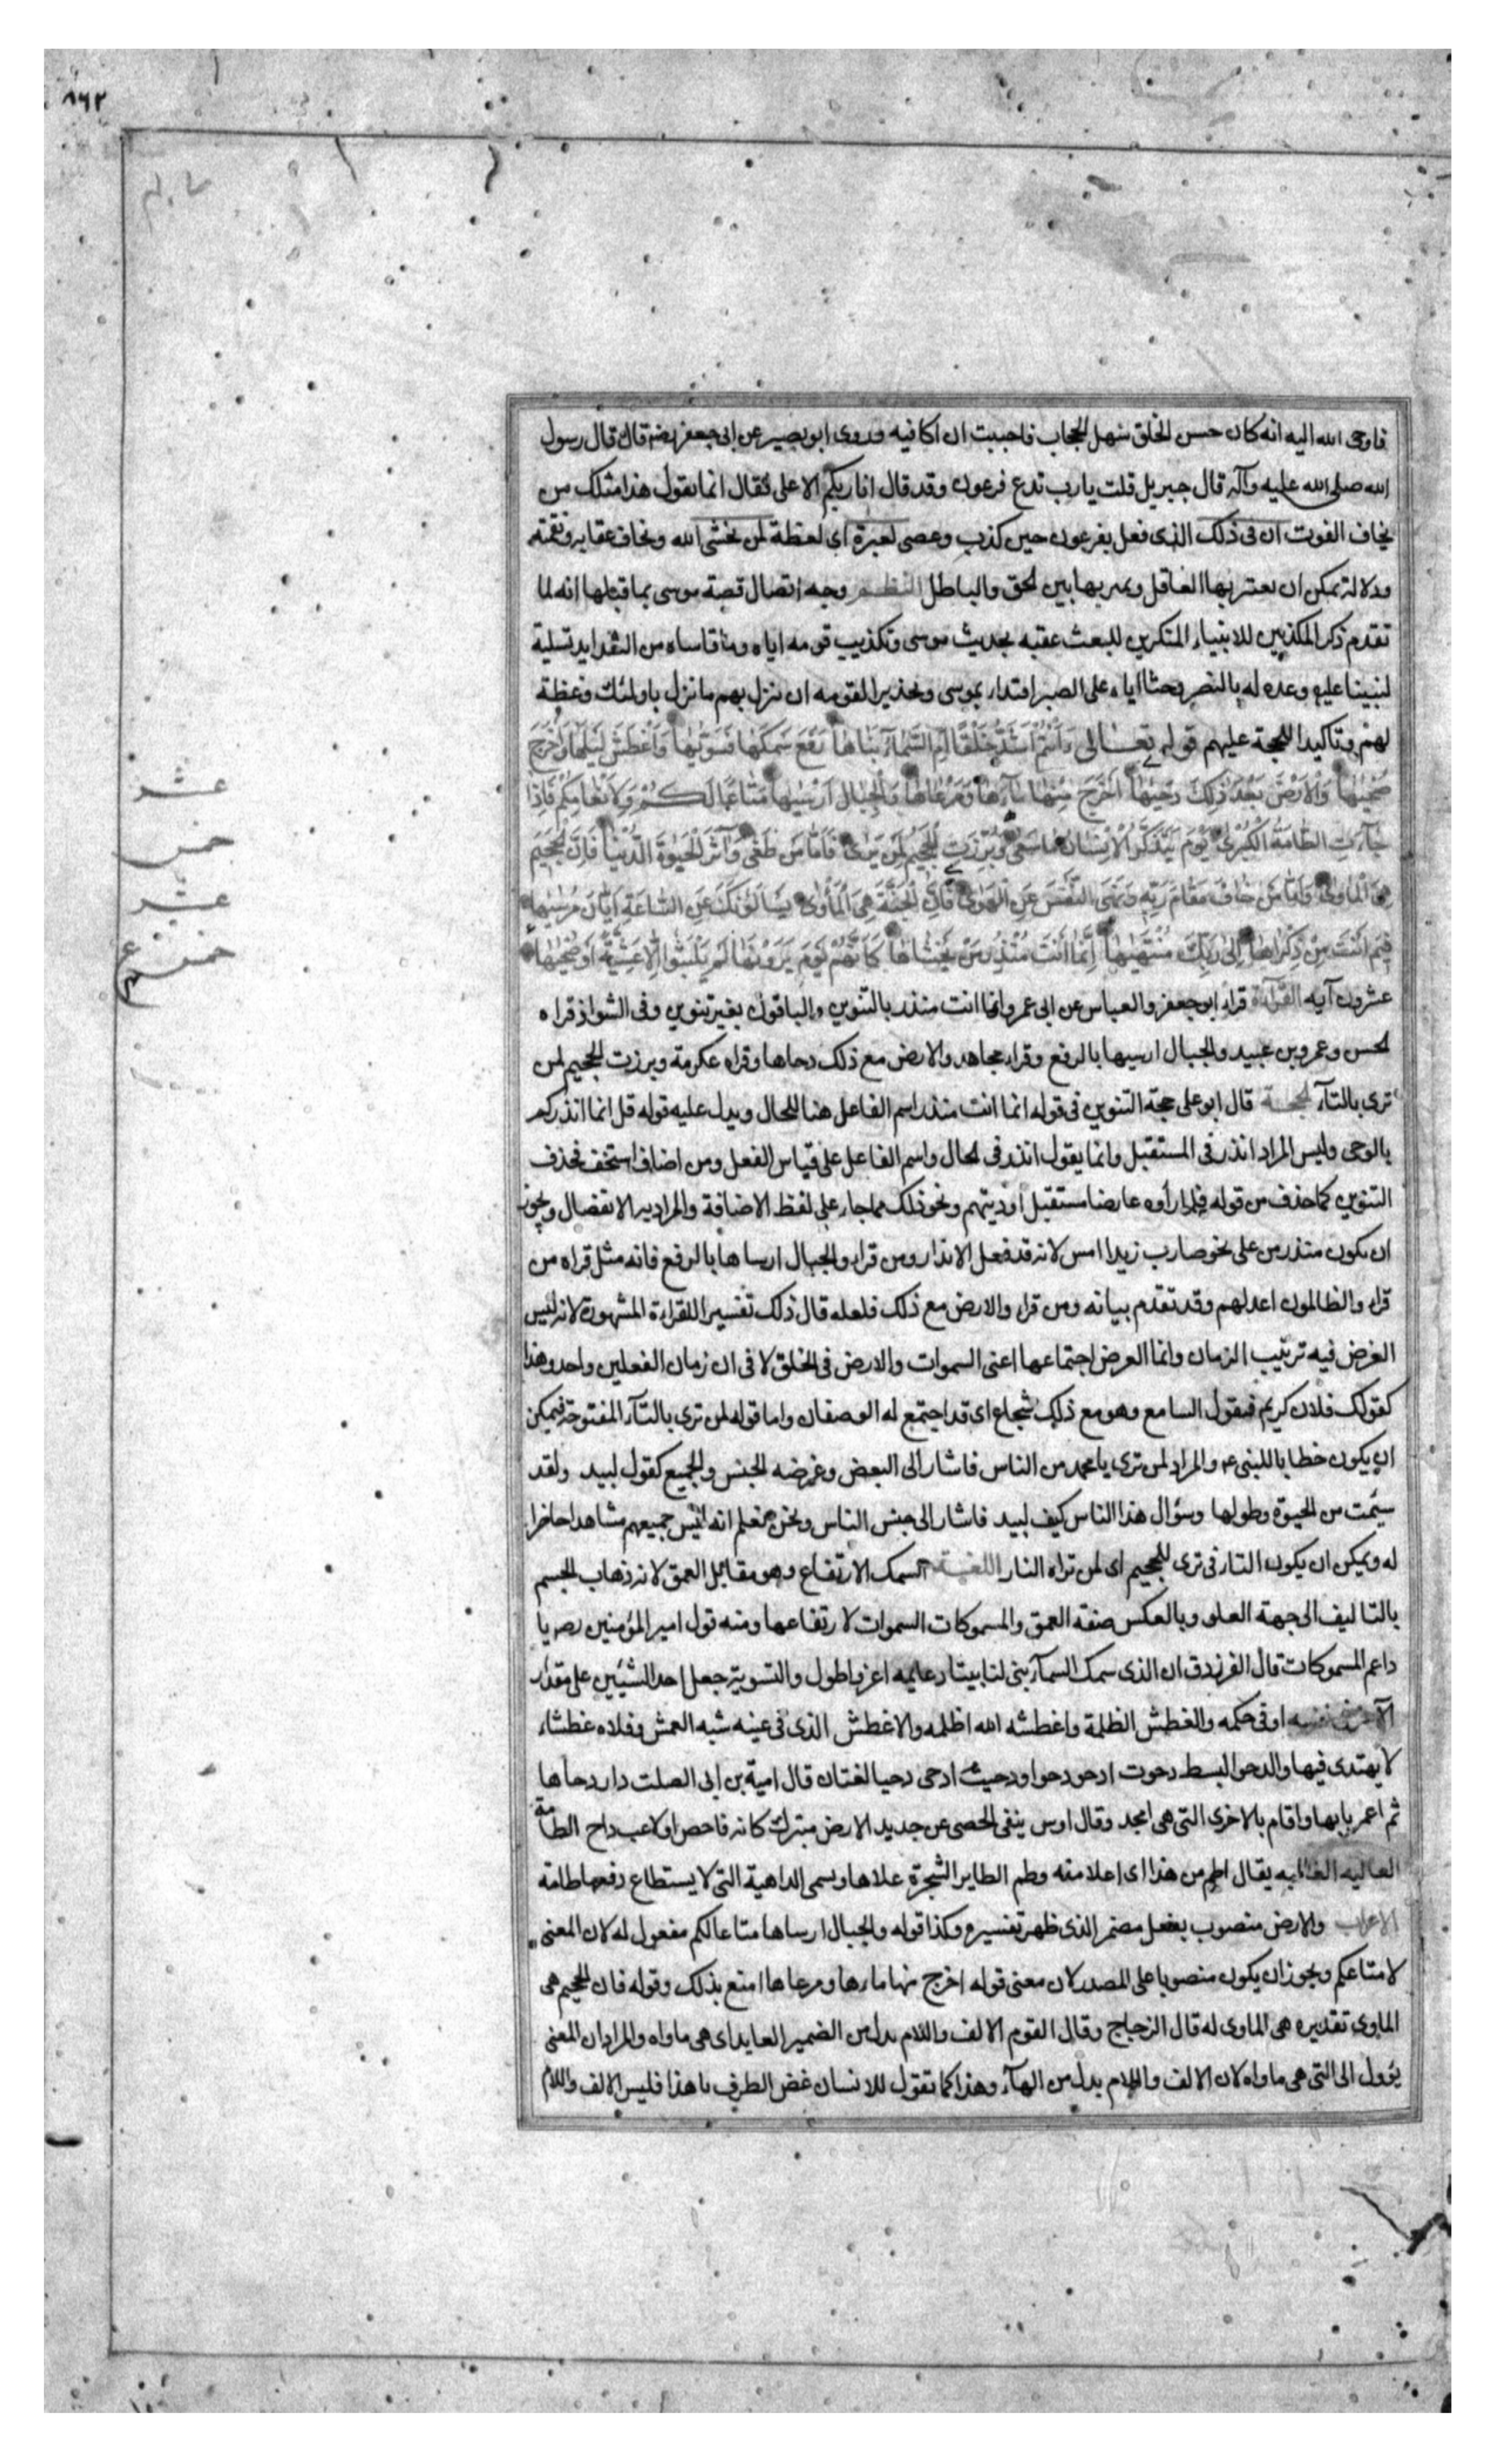 ٨٦٢
فاوحى الله اليه انه كان حسن الخلق سهل الحجاب فاحببت ان اكافيه وروى ابو بصير عن ابى جعفر رضه قال قال رسول
الله صلى الله عليه وآله قال جبريل قلت يا رب تدع فرعون وقد قال انا ربكم الاعلى فقال انما يقول هذا مثلك من
يخاف الفوت ان فى ذلك الذى فعل بفرعون حين كذب وعصى لعبرة اى لعظة لمن يخشى الله ويخاف عقابه ونقمته
ودلالة يمكن ان يعتبر بها العاقل ويميز بها بين الحق والباطل النظم وجه اتصال قصة موسى بما قبلها انه لما
تقدم ذكر المكذبين للانبياء المنكرين للبعث عقبه بحديث موسى وتكذيب قومه اياه وما قاساه من الشدايد تسلية
لنبينا عليه وعده له بالنصر وحثا اياه على الصبر اقتداء بموسى وتحذيرا لقومه ان ينزل بهم ما نزل باولئك وعظة
لهم وتاكيدا للحجة عليهم قوله تعالى ءَاَنْتُمْ اَشَدُّ خَلْقًا اَمِ السَّمَآءُ بَنَاهَا رَفَعَ سَمْكَهَا فَسَوّٰيهَا وَاَغْطَشَ لَيْلَهَا وَاَخْرَجَ
ضُحٰيهَا وَالْاَرْضَ بَعْدَ ذٰلِكَ دَحٰيهَا اَخْرَجَ مِنْهَا مَآءَهَا وَمَرْعَاهَا وَالْجِبَالَ اَرْسٰيهَا مَتَاعًا لَكُمْ وَلِاَنْعَامِكُمْ فَاِذَا
جَآءَتِ الطَّامَّةُ الْكُبْرٰى يَوْمَ يَتَذَكَّرُ الْاِنْسَانُ مَا سَعٰى وَبُرِّزَتِ الْجَحِيمُ لِمَنْ يَرٰى فَاَمَّا مَنْ طَغٰى وَآثَرَ الْحَيٰوةَ الدُّنْيَا فَاِنَّ الْجَحِيمَ
هِىَ الْمَاْوٰى وَاَمَّا مَنْ خَافَ مَقَامَ رَبِّهِ وَنَهَى النَّفْسَ عَنِ الْهَوٰى فَاِنَّ الْجَنَّةَ هِىَ الْمَاْوٰى يَسْاَلُونَكَ عَنِ السَّاعَةِ اَيَّانَ مُرْسٰيهَا
فِيمَ اَنْتَ مِنْ ذِكْرَاهَا اِلٰى رَبِّكَ مُنْتَهٰيهَا اِنَّمَا اَنْتَ مُنْذِرُ مَنْ يَخْشَاهَا كَاَنَّهُمْ يَوْمَ يَرَوْنَهَا لَمْ يَلْبَثُوا اِلَّا عَشِيَّةً اَوْ ضُحٰيهَا
عشرون آية القراءة قراء ابو جعفر والعباس عن ابى عمرو انما انت منذر بالتنوين والباقون بغير تنوين وفى الشواذ قراه
الحسن وعمرو بن عبيد والجبال ارسيها بالرفع وقراء مجاهد والارض مع ذلك دحاها وقراء عكرمة وبرزت الجحيم لمن
ترى بالتآء الحجة قال ابو على حجة التنوين فى قوله انما انت منذر اسم الفاعل هنا للحال ويدل عليه قوله قل انما انذركم
بالوحى وليس المراد انذر فى المستقبل وانما يقول انذر فى الحال واسم الفاعل على قياس الفعل ومن اضاف استخف فحذف
التنوين كما حذف من قوله فلما رأوه عارضا مستقبل اوديتهم ونحو ذلك مما جاء على لفظ الاضافة والمراد به الانفصال ويجوز
ان يكون منذر من على نحو ضارب زيدا امس لانه قد فعل الانذار ومن قراء والجبال ارساها بالرفع فانه مثل قراه من
قراء والظالمون اعد لهم وقد تقدم بيانه ومن قراء والارض مع ذلك فلعله قال ذلك تفسيرا للقراءة المشهورة لانه ليس
الغرض فيه ترتيب الزمان وانما الغرض اجتماعها اعنى السموات والارض فى الخلق لا فى ان زمان الفعلين واحد وهذا
كقولك فلان كريم فيقول السامع وهو مع ذلك شجاع اى قد اجتمع له الوصفان واما قوله لمن ترى بالتآء المفتوحة فيمكن
ان يكون خطابا للنبى ع والمراد لمن ترى يا محمد من الناس فاشار الى البعض وغرضه الجنس والجميع كقول لبيد ولقد
سئمت من الحيوة وطولها وسؤال هذا الناس كيف لبيد فاشار الى جنس الناس ونحن نعلم انه ليس جميعهم مشاهدا حاضرا
له ويمكن ان يكون التاء فى ترى للجحيم اى لمن تراه النار اللغة السمك الارتفاع وهو مقابل العمق لانه ذهاب الجسم
بالتاليف الى جهة العلو وبالعكس صفة العمق والمسموكات السموات لارتفاعها ومنه قول امير المؤمنين رضه يا
داعم المسموكات قال الفرزدق ان الذى سمك السمآء بنى لنا بيتا دعايمه اعز واطول والتسوية جعل احد الشيئين على مقدار
الآخر فى نفسه او فى حكمه والغطش الظلمة واغطشه الله اظلمه والاغطش الذى فى عينه شبه العمش وفلاة غطشاء
لا يهتدى فيها والدحو البسط دحوت ادحو دحوا ودحيت ادحى دحيا لغتان قال امية بن ابى الصلت دار دحاها
ثم اعمر بابها واقام بالاخرى التى هى امجد وقال اوس ينفى الحصى عن جديد الارض مبترك كانه فاحص او لاعب داح الطامة
العاليه الغالبه يقال اطم من هذا اى اعلا منه وطم الطاير الشجرة علاها ويسمى الداهية التى لا يستطاع دفعها طامة
الاعراب والارض منصوب بفعل مضمر الذى ظهر تفسيره وكذا قوله والجبال ارساها متاعا لكم مفعول له لان المعنى
لامتاعكم ويجوز ان يكون منصوبا على المصدر لان معنى قوله اخرج منها ماءها ومرعاها امتع بذلك وقوله فان الجحيم هى
الماوى تقديره هى الماوى له قال الزجاج وقال القوم الالف واللام بدل من الضمير العايد اى هى ماواه والمراد ان المعنى
يؤول الى التى هى ماواه لان الالف واللام بدل من الهآء وهذا كما تقول للانسان غض الطرف يا هذا فليس الالف واللام
عشر
خمس
عشر
خمس
ع